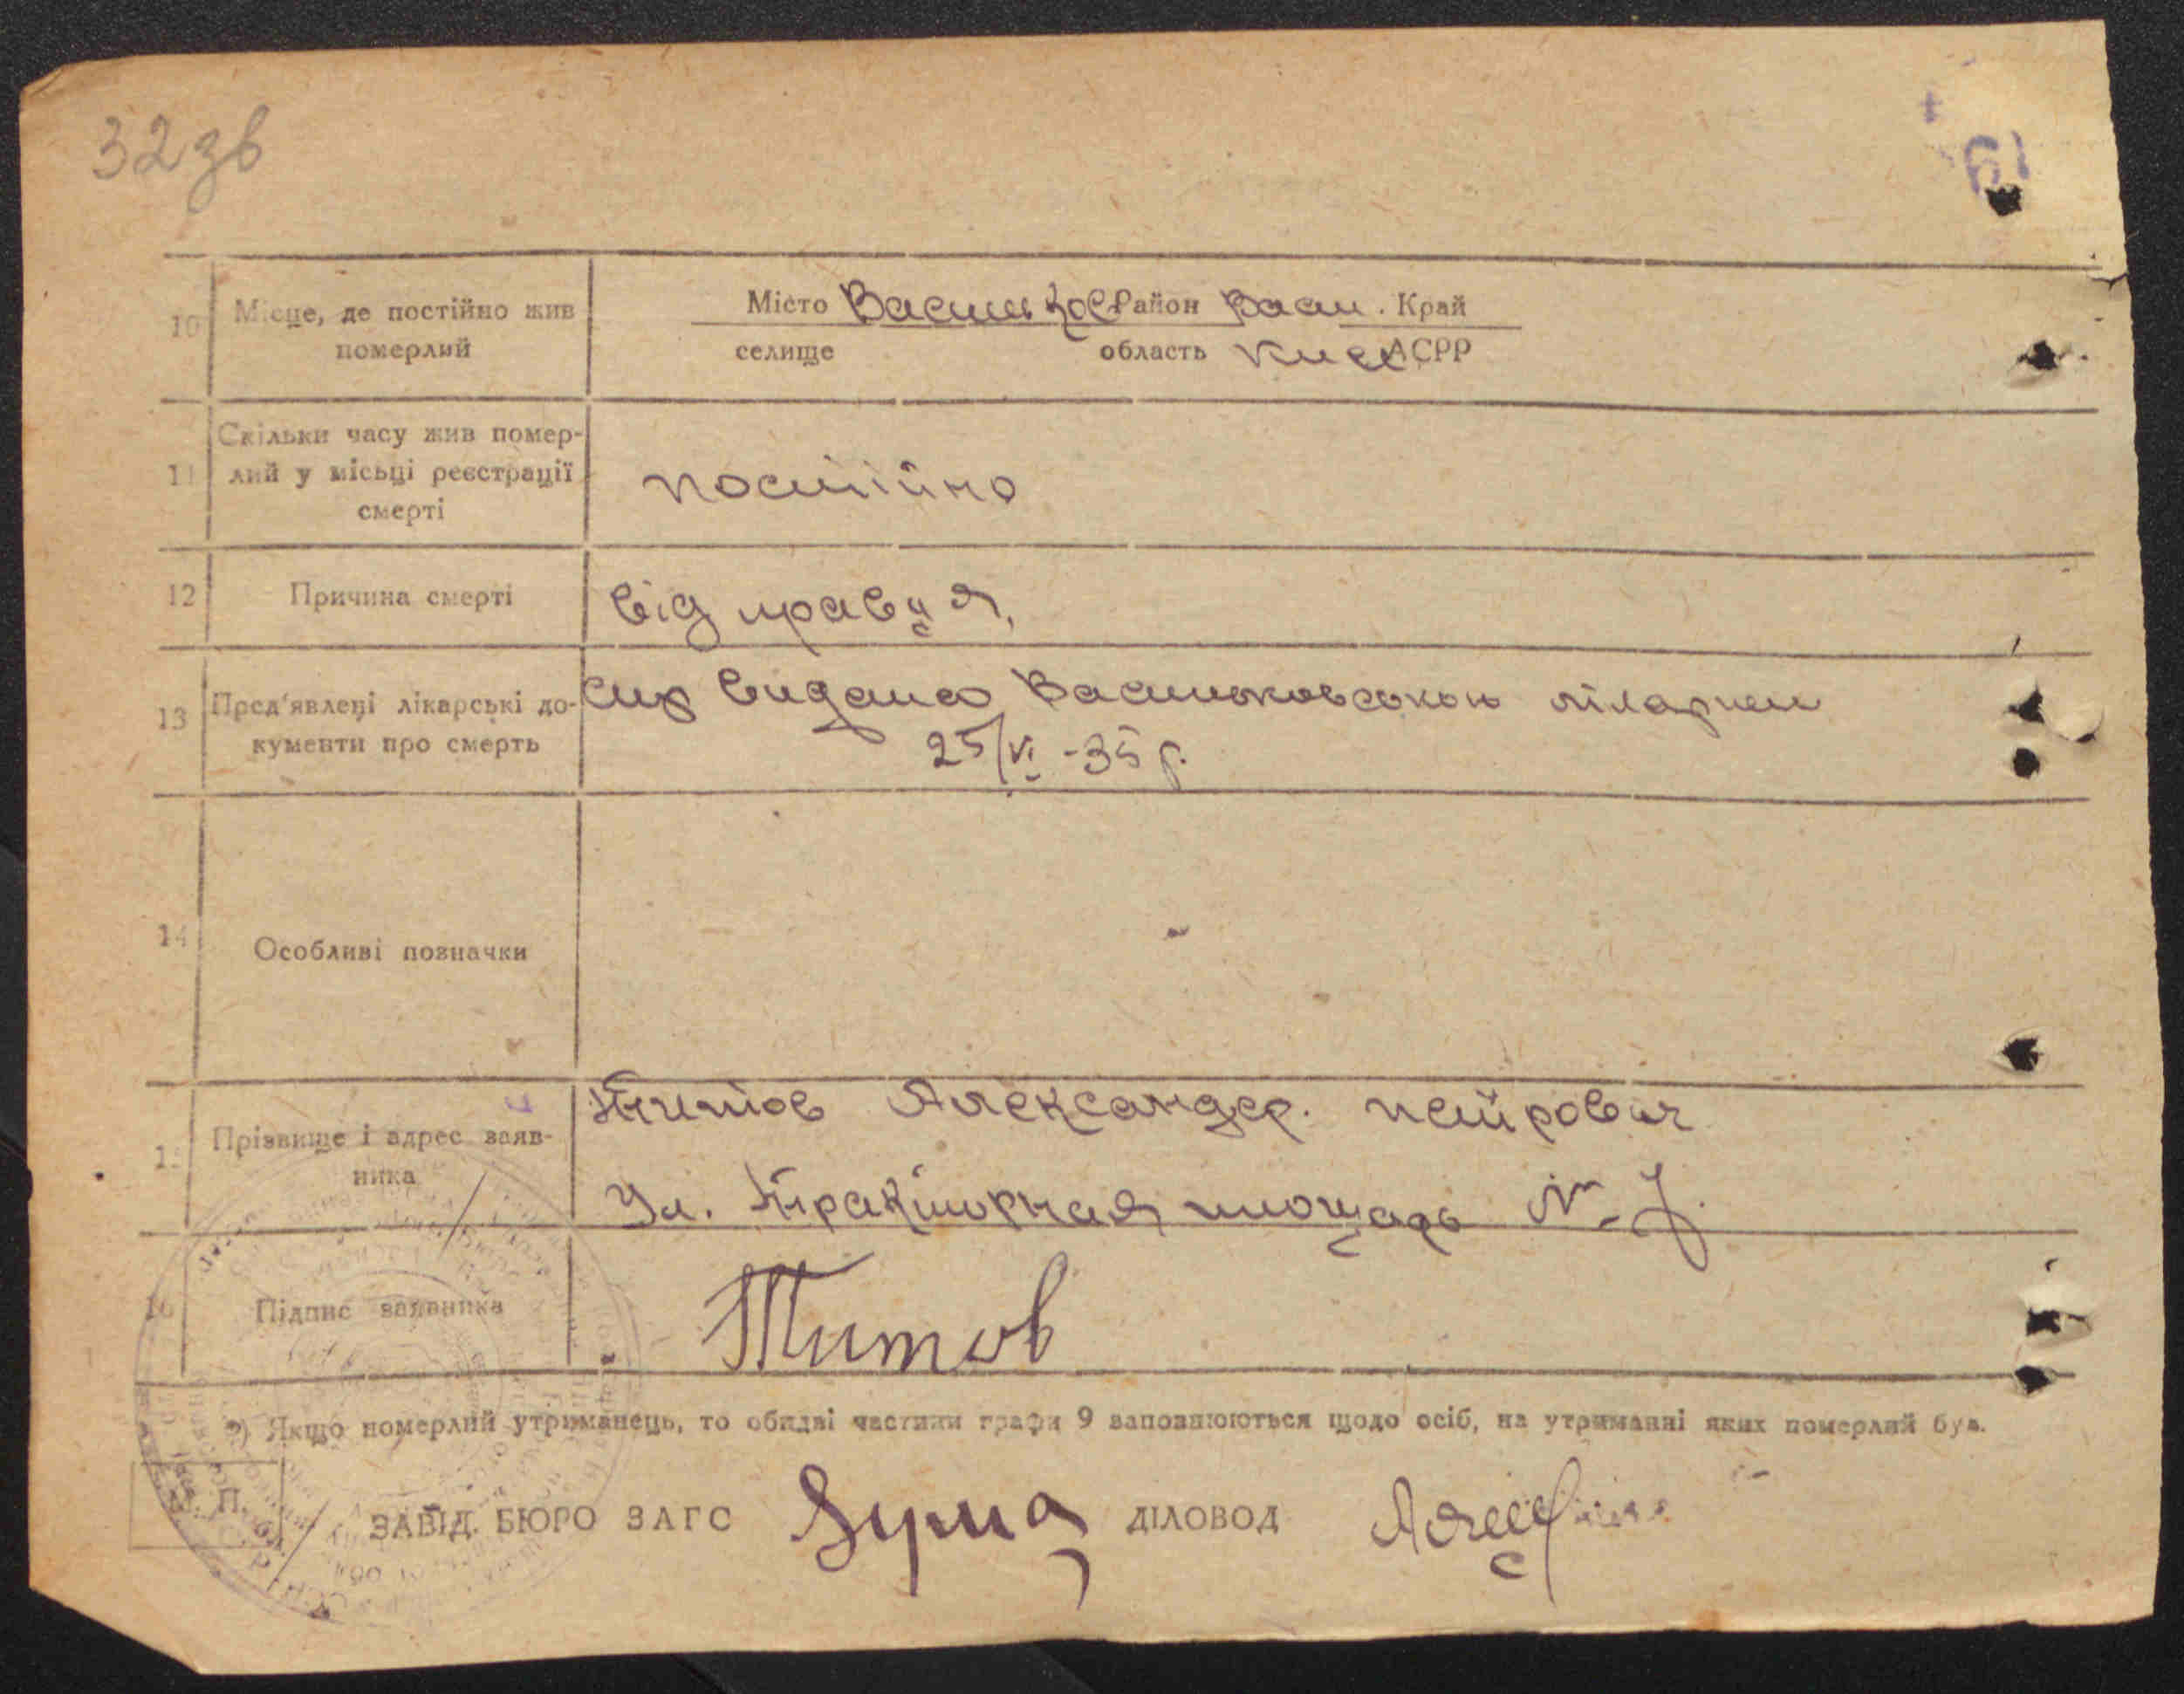 32 зв
10 Місце, де постійно жив померлий
Місто Васильков Район Васил. Край
селище область Киев АСРР
11 Скільки часу жив помер-
лий у місьці реєстрації
смерті
постійно
12 Причина смерті
від правця,
13 Пред'явлені лікарські до-
кументи про смерть
видано Васильковською лікарнею
25/VI -35 р.
14 Особливі позначки
15 Прізвище і адрес заяв-
ника
Титов Александер. петрович
Ул. Тракторная площадь № 7.
16 Підпис заявника
Титов
*) Якщо померлий утриманець, то обидві частини графи 9 заповнюються щодо осіб, на утриманні яких померлий був.
М. П.
ЗАВІД. БЮРО ЗАГС ДІЛОВОД